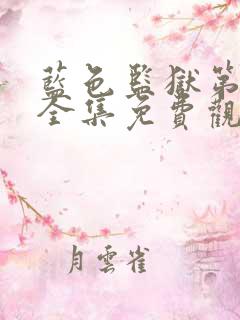 藍色監獄第
全集免費觀
月雲雀